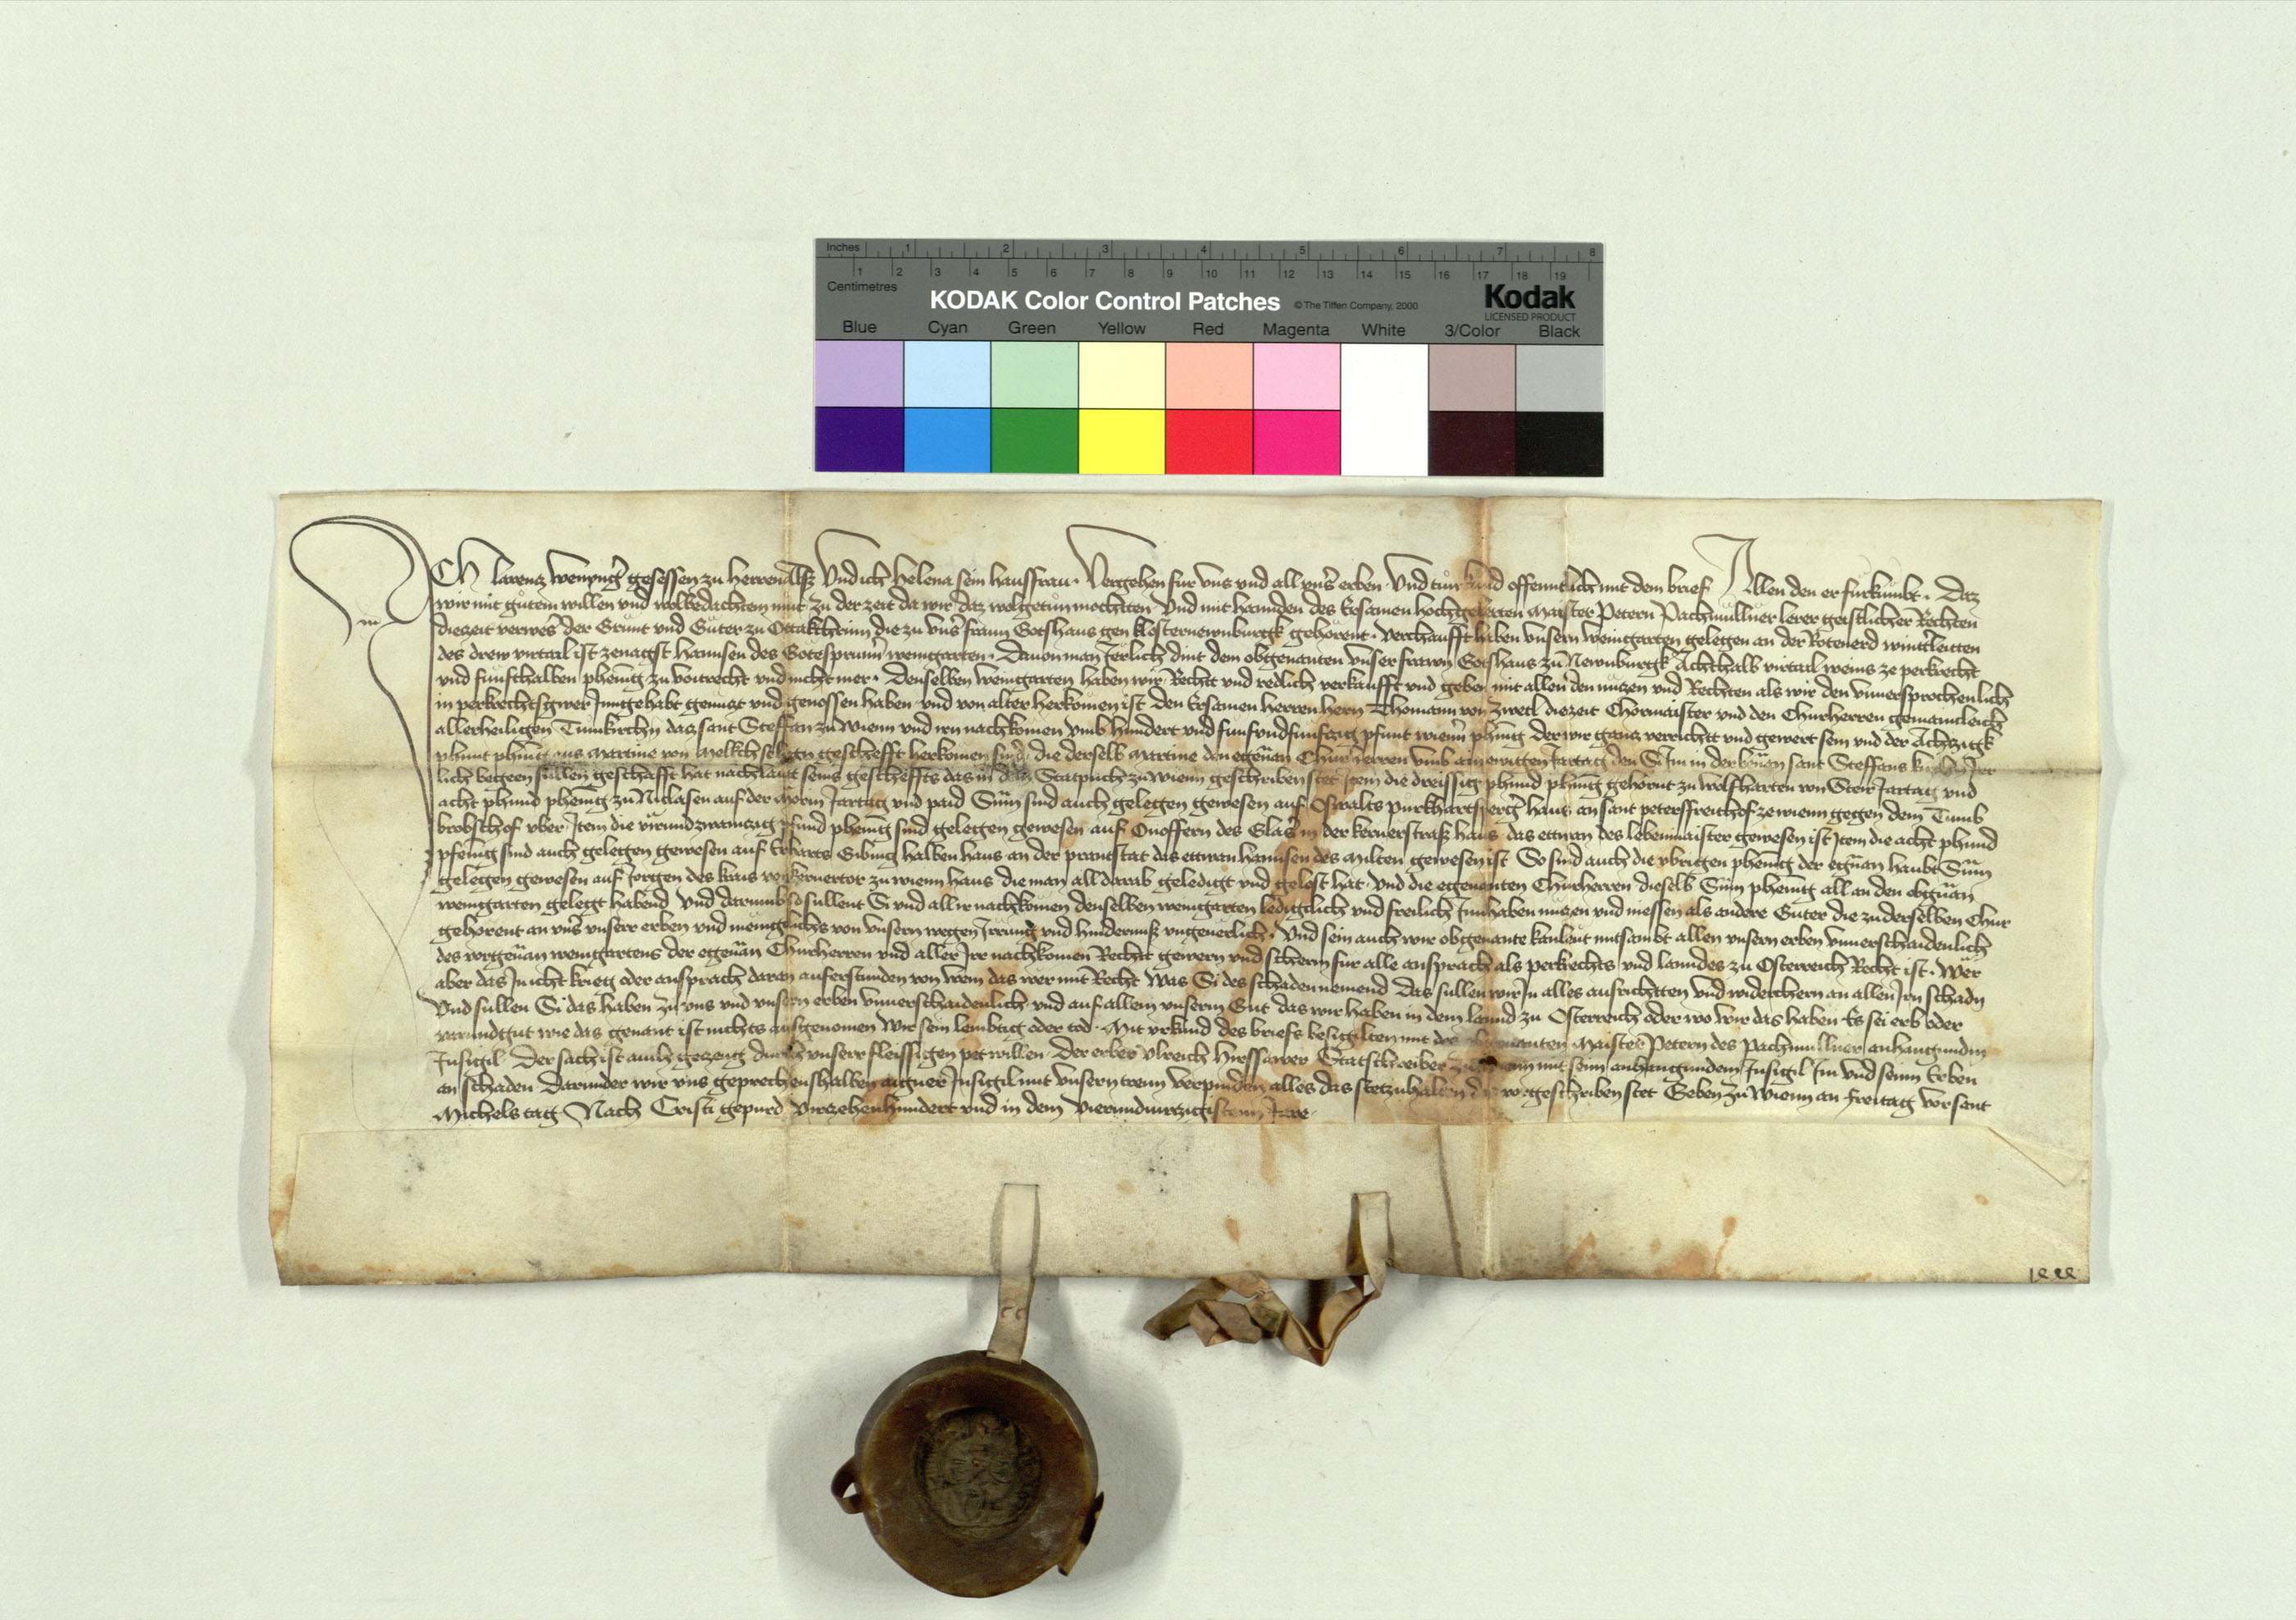 Inches 1 2 3 4 5 6 7 8
1 2 3 4 5 6 7 8 9 10 11 12 13 14 15 16 17 18 19
Centimetres
KODAK Color Control Patches © The Tiffen Company, 2000 Kodak
LICENSED PRODUCT
Blue Cyan Green Yellow Red Magenta White 3/Color Black
Ich larenz gesessen zu Herrenalß Und ich Helena sein hausfrau. Vergehen fur vns vnd all vnser erben. Vnd tun kund offennlich mit dem brief Allen den er furkumbt. Daz
wir mit gutem willen vnd wolbedachtem mut zu der zeit da wir daz wolgetun mochten Vnd mit hannden des Ersamen hochgelerten maister Petern Pachmullner lerer geistlicher Rechten
diezeit verweser der Grunt vnd Guter zu Ottakchrinn die zu vnser fraun Gotshaus gen klosternewnburgk gehorent. Verchaufft haben vnsern weingarten gelegen an der Rotenerd
des drew virtail ist zenagst Hannsen des weingarten. Dauon man Jerlich dint dem obgenanten vnser frawn Gotshaus zu Newnburgk Achthalb virtail weins ze perkrecht
vnd funfthalben phening zu voitrecht vnd nicht mer. Denselben weingarten haben wir Recht vnd redlich verkaufft vnd geben mit allen den nuzen vnd Rechten als wir den vnuersprochenlich
in perkrechtsgwer Inngehabt genuzt vnd genossen haben vnd von alter herkomen ist Den Ersamen herren hern Thoman von Zwetl diezeit Chormaister vnd den Churherren gemainclich
allerheiligen Tumkirchn daz sant Steffan zu Wienn vnd irn nachkomen vmb hundert vnd funfvndfunfzig phunt wienner phening der wir ganz verricht vnd gewert sein vnd der Achzigk
phunt phening aus Martine von geschefft herkomen sind. die derselb Martine den egenan Churherren vmb ain ewigen Jartag den Si Im in der benan sant Steffans kirchen
lich begeen sullen geschafft hat nachlaut seins gescheffts das in der Statpuch zu wienn geschriben stet Item die dreissig phund phening gehornt zu Wolfharten von Steir Jartag vnd
acht phund phening zu Niclasen auf der Jartag vnd paid Sum sind auch gelegen gewesen auf Oswalts haus an sant peters freithof ze wienn gegen dem Tumb
brobsthof vber. Item die virundzwainzig phund phening sind gelegen gewesen auf Onoffern des in der kernerstrass haus das ettwan des lebenmaister gewesen ist Item die acht phund
phening sind auch gelegen gewesen auf Erharts halben haus an der prantstat das ettwan Hannsen des gewesen ist So sind auch die vbrigen phening der egenan haubt Sum
gelegen gewesen auf Jorgen des kernertor zu wienn haus die man all darab geledigt vnd gelost hat. Vnd die egenanten Churherren dieselb Sum phening all an den obgenan
weingarten gelegt habend Vnd darumb so sullent Si vnd all ir nachkomen denselben weingarten lediglich vnd freilich Innhaben nuzen vnd niessen als andere Guter die zu derselben Chur
gehorent an vnser vnserr erben vnd von vnsern wegen Irrung vnd hindernuss vngeuerlich. Vnd sein auch wir obgenante kanleut mitsambt allen vnsern erben vnuerschaidenlich
des vorgenan weingartens der egenan Churherren vnd aller Irr nachkomen Recht gewern vnd scherm fur alle ansprach als perkrechts vnd lanndes zu Osterreich Recht ist. Wer
aber das In icht krieg oder ansprach daran auferstunden von wem das wer mit Recht Was Si des schaden nemend Das sullen wir In alles ausrichten vnd widerchern an allen Irn schadn
Vnd sullen Si das haben zu vns vnd vnsern erben vnuerschaidenlich vnd auf allem vnserm Gut das wir haben in dem lannd zu Osterreich oder wo wir das haben Es sei erb oder
varundgut wie das genant ist nichts ausgenomen Wir sein lembtig oder tod. Mit vrkund des briefs besigilten mit des maister Petern des Pachmullner anhangundm
Insigil Der sach ist auch gezeug durch vnserr fleissigen pet willen Der erber Vlreich Hirssawer Statschreiber zu wienn mit seim anhangundem Insigil Im vnd seinn Erben
an schaden Darunder wir vns geprechenshalben aigner Insigil mit vnsern trewn verpinden alles das stet zu halten vorgeschriben stet Geben zu Wienn an freitag vor sant
Michels tag Nach Cristi gepurd Virzehenhundert vnd in dem Virundvirzigistem Jare.